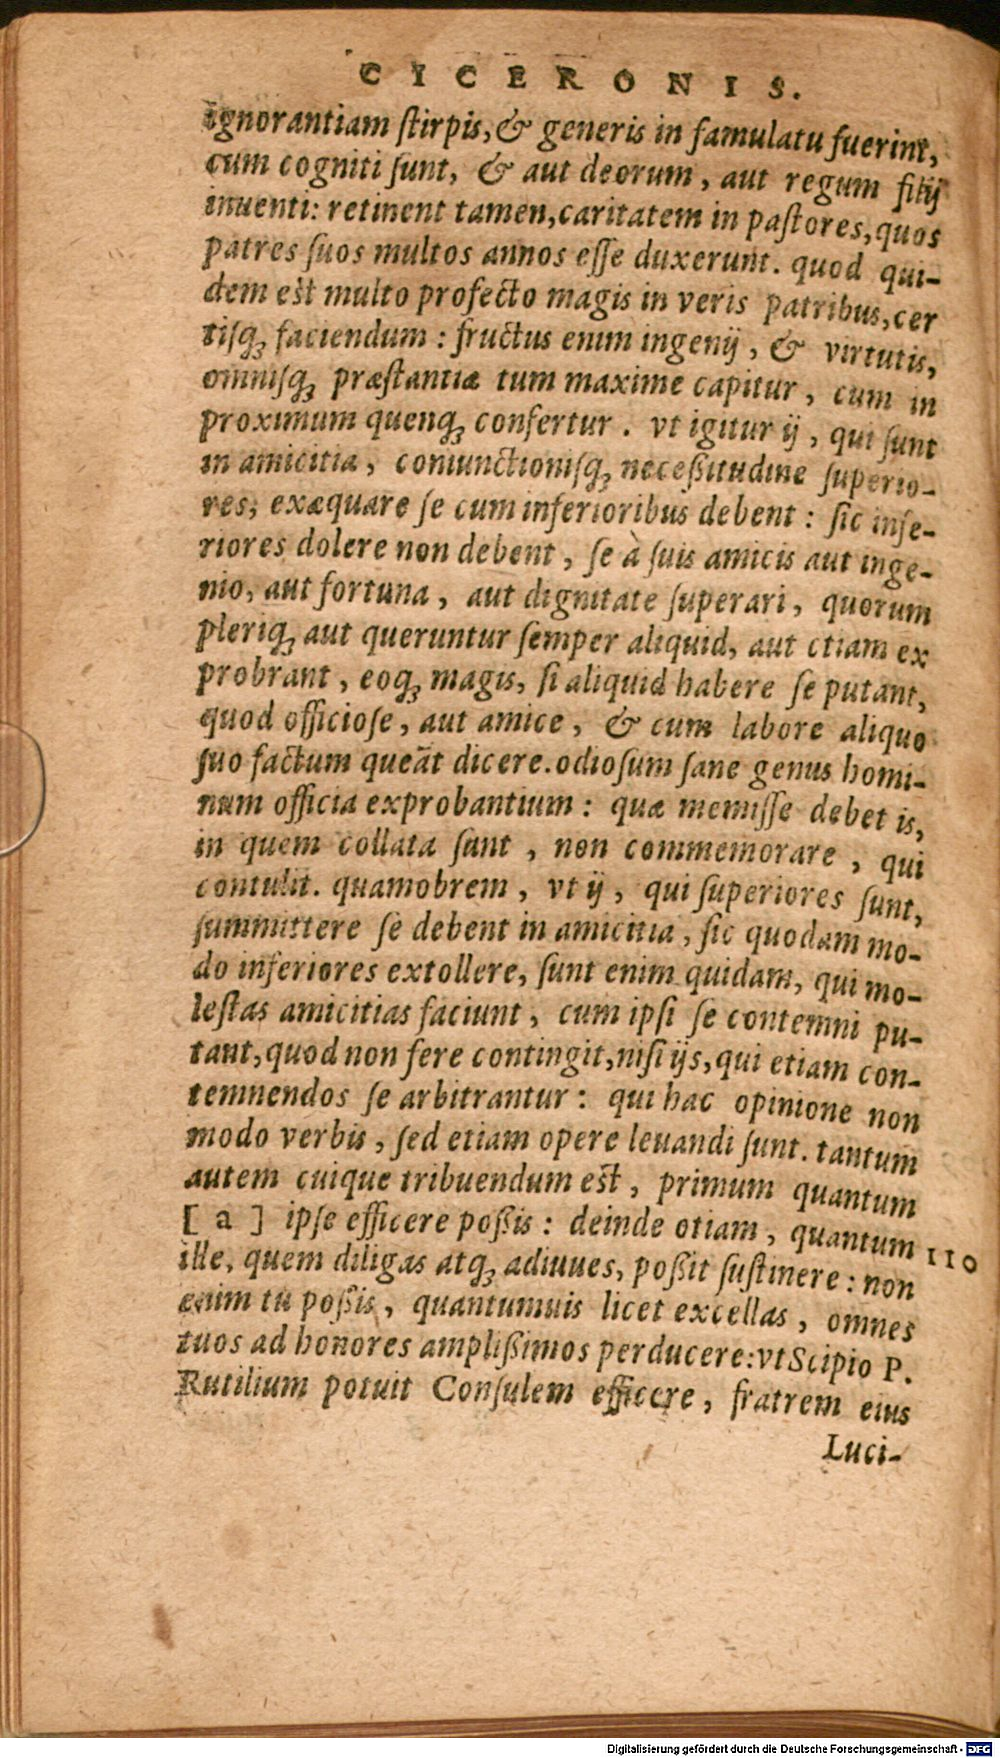 CICERONIS.
ignorantiam ſtirpis, & generis in famulatu fuerint,
cum cogniti ſunt, & aut deorum, aut regum filij
inuenti: retinent tamen, caritatem in paſtores, quos
patres ſuos multos annos eſſe duxerunt. quod qui-
dem eſt multo profecto magis in veris patribus, cer
tiſq́ꝫ faciendum: fructus enim ingenij, & virtutis,
omniſq́ꝫ præſtantiæ tum maxime capitur, cum in
proximum quenq́ꝫ confertur. vt igitur ij, qui ſunt
in amicitia, coniunctioniſq́ꝫ neceßitudine ſuperio-
res, exæquare ſe cum inferioribus debent: ſic infe-
riores dolere non debent, ſe à ſuis amicis aut inge-
nio, aut fortuna, aut dignitate ſuperari, quorum
pleriq́ꝫ aut queruntur ſemper aliquid, aut etiam ex
probrant, eoq́ꝫ magis, ſi aliquid habere ſe putant,
quod officioſe, aut amice, & cum labore aliquo
ſuo factum queāt dicere. odioſum ſane genus homi-
num officia exprobantium: quæ memiſſe debet is,
in quem collata ſunt, non commemorare, qui
contulit. quamobrem, vt ij, qui ſuperiores ſunt,
ſummittere ſe debent in amicitia, ſic quodam mo-
do inferiores extollere, ſunt enim quidam, qui mo-
leſtas amicitias faciunt, cum ipſi ſe contemni pu-
tant, quod non fere contingit, niſi ijs, qui etiam con-
temnendos ſe arbitrantur: qui hac opinione non
modo verbis, ſed etiam opere leuandi ſunt. tantum
autem cuique tribuendum eſt, primum quantum
[ a ] ipſe efficere poßis: deinde etiam, quantum 110
ille, quem diligas atq́ꝫ adiuues, poßit ſuſtinere: non
enim tu poßis, quantumuis licet excellas, omnes
tuos ad honores amplißimos perducere: vt Scipio P.
Rutilium potuit Conſulem efficere, fratrem eius
Luci-
Digitalisierung gefördert durch die Deutsche Forschungsgemeinschaft - DFG